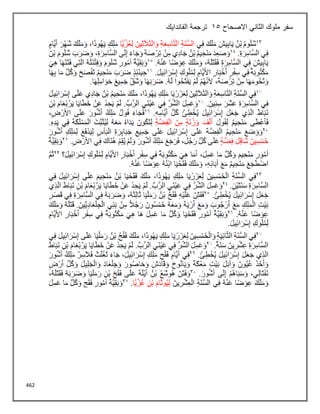 سفر ملوك الثاني الاصحاح ١٥ ترجمة الفاندايك
١٣شَلُّومُ بْنُ يَابِيشَ مَلَكَ فِي السَّنَةِ التَّاسِعَةِ وَالثَّلاَثِينَ لِعُزِّيَّا مَلِكِ يَهُوذَا، مَلَكَ شَهْرَ أَيَّامٍ
فِي السَّامِرَةِ. ١٤وَصَعِدَ مَنَحِيمُ بْنُ جَادِي مِنْ تِرْصَةَ وَجَاءَ إِلَى السَّامِرَةِ، وَضَرَبَ شَلُّومَ بْنَ
يَابِيشَ فِي السَّامِرَةِ فَقَتَلَهُ، وَمَلَكَ عِوَضًا عَنْهُ. ١٥وَبَقِيَّةُ أُمُورِ شَلُّومَ وَفِتْنَتُهُ الَّتِي فَتَنَهَا هِيَ
مَكْتُوبَةٌ فِي سِفْرِ أَخْبَارِ الأَيَّامِ لِمُلُوكِ إِسْرَائِيلَ. ١٦حِينَئِذٍ ضَرَبَ مَنَحِيمُ تِفْصَحَ وَكُلَّ مَا بِهَا
وَتُخُومَهَا مِنْ تِرْصَةَ، لأَنَّهُمْ لَمْ يَفْتَحُوا لَهُ. ضَرَبَهَا وَشَقَّ جَمِيعَ حَوَامِلِهَا.
١٧فِي السَّنَةِ التَّاسِعَةِ وَالثَّلاَثِينَ لِعَزَرْيَا مَلِكِ يَهُوذَا، مَلَكَ مَنَحِيمُ بْنُ جَادِي عَلَى إِسْرَائِيلَ
فِي السَّامِرَةِ عَشَرَ سِنِينَ. ١٨وَعَمِلَ الشَّرَّ فِي عَيْنَيِ الرَّبِّ. لَمْ يَحِدْ عَنْ خَطَايَا يَرُبْعَامَ بْنِ
نَبَاطَ الَّذِي جَعَلَ إِسْرَائِيلَ يُخْطِئُ كُلَّ أَيَّامِهِ. ١٩فَجَاءَ فُولُ مَلِكُ أَشُّورَ عَلَى الأَرْضِ،
فَأَعْطَى مَنَحِيمُ لِفُولَ أَلْفَ وَزْنَةٍ مِنَ الْفِضَّةِ لِتَكُونَ يَدَاهُ مَعَهُ لِيُثَبِّتَ الْمَمْلَكَةَ فِي يَدِهِ.
٢٠وَوَضَعَ مَنَحِيمُ الْفِضَّةَ عَلَى إِسْرَائِيلَ عَلَى جَمِيعِ جَبَابِرَةِ الْبَأْسِ لِيَدْفَعَ لِمَلِكِ أَشُّورَ
خَمْسِينَ شَاقِلَ فِضَّةٍ عَلَى كُلِّ رَجُل، فَرَجَعَ مَلِكُ أَشُّورَ وَلَمْ يُقِمْ هُنَاكَ فِي الأَرْضِ. ٢١وَبَقِيَّةُ
أُمُورِ مَنَحِيمَ وَكُلُّ مَا عَمِلَ، أَمَا هِيَ مَكْتُوبَةٌ فِي سِفْرِ أَخْبَارِ الأَيَّامِ لِمُلُوكِ إِسْرَائِيلَ؟ ٢٢ثُمَّ
اضْطَجَعَ مَنَحِيمُ مَعَ آبَائِهِ، وَمَلَكَ فَقَحْيَا ابْنُهُ عِوَضًا عَنْهُ.
٢٣فِي السَّنَةِ الْخَمْسِينَ لِعَزَرْيَا مَلِكِ يَهُوذَا، مَلَكَ فَقَحْيَا بْنُ مَنَحِيمَ عَلَى إِسْرَائِيلَ فِي
السَّامِرَةِ سَنَتَيْنِ. ٢٤وَعَمِلَ الشَّرَّ فِي عَيْنَيِ الرَّبِّ. لَمْ يَحِدْ عَنْ خَطَايَا يَرُبْعَامَ بْنِ نَبَاطَ الَّذِي
جَعَلَ إِسْرَائِيلَ يُخْطِئُ. ٢٥فَفَتَنَ عَلَيْهِ فَقْحُ بْنُ رَمَلْيَا ثَالِثُهُ، وَضَرَبَهُ فِي السَّامِرَةِ فِي قَصْرِ
بَيْتِ الْمَلِكِ مَعَ أَرْجُوبَ وَمَعَ أَرْيَةَ وَمَعَهُ خَمْسُونَ رَجُلاً مِنْ بَنِي الْجِلْعَادِيِّينَ. قَتَلَهُ وَمَلَكَ
عِوَضًا عَنْهُ. ٢٦وَبَقِيَّةُ أُمُورِ فَقَحْيَا وَكُلُّ مَا عَمِلَ هَا هِيَ مَكْتُوبَةٌ فِي سِفْرِ أَخْبَارِ الأَيَّامِ
لِمُلُوكِ إِسْرَائِيلَ.
٢٧فِي السَّنَةِ الثَّانِيَةِ وَالْخَمْسِينَ لِعَزَرْيَا مَلِكِ يَهُوذَا، مَلَكَ فَقْحُ بْنُ رَمَلْيَا عَلَى إِسْرَائِيلَ فِي
السَّامِرَةِ عِشْرِينَ سَنَةً. ٢٨وَعَمِلَ الشَّرَّ فِي عَيْنَيِ الرَّبِّ. لَمْ يَحِدْ عَنْ خَطَايَا يَرُبْعَامَ بْنِ نَبَاطَ
الَّذِي جَعَلَ إِسْرَائِيلَ يُخْطِئُ. ٢٩فِي أَيَّامِ فَقْحٍ مَلِكِ إِسْرَائِيلَ، جَاءَ تَغْلَثَ فَلاَسِرُ مَلِكُ أَشُّورَ
وَأَخَذَ عُيُونَ وَآبَلَ بَيْتِ مَعْكَةَ وَيَانُوحَ وَقَادَشَ وَحَاصُورَ وَجِلْعَادَ وَالْجَلِيلَ وَكُلَّ أَرْضِ
نَفْتَالِي، وَسَبَاهُمْ إِلَى أَشُّورَ. ٣٠وَفَتَنَ هُوشَعُ بْنُ أَيْلَةَ عَلَى فَقْحَ بْنِ رَمَلْيَا وَضَرَبَهُ فَقَتَلَهُ،
وَمَلَكَ عِوَضًا عَنْهُ فِي السَّنَةِ الْعِشْرِينَ لِيُوثَامَ بْنِ عُزِّيَّا. ٣١وَبَقِيَّةُ أُمُورِ فَقْحَ وَكُلُّ مَا عَمِلَ
462